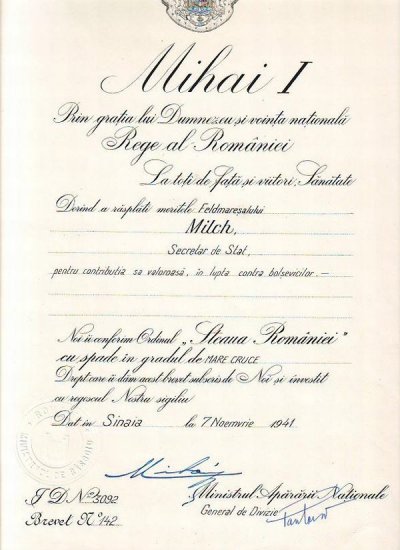 Mihai I
Prin grația lui Dumnezeu și voința națională
Rege al României
La toți de față și viitori, Sănătate
Dorind a răsplăti meritele Feldmareșalului
Milch,
Secretar de Stat,
pentru contribuția sa valoroasă, în lupta contra bolșevicilor.—
Noi îi conferim Ordinul „Steaua României”
cu spade în gradul de MARE CRUCE
Drept care îi dăm acest brevet subscris de Noi și învestit
cu regescul Nostru sigiliu
Dat in Sinaia la 7 Noemvrie 1941
Mihai
J.D. No. 5092
Ministrul Apărării Naționale
General de Divizie
Brevet No. 142